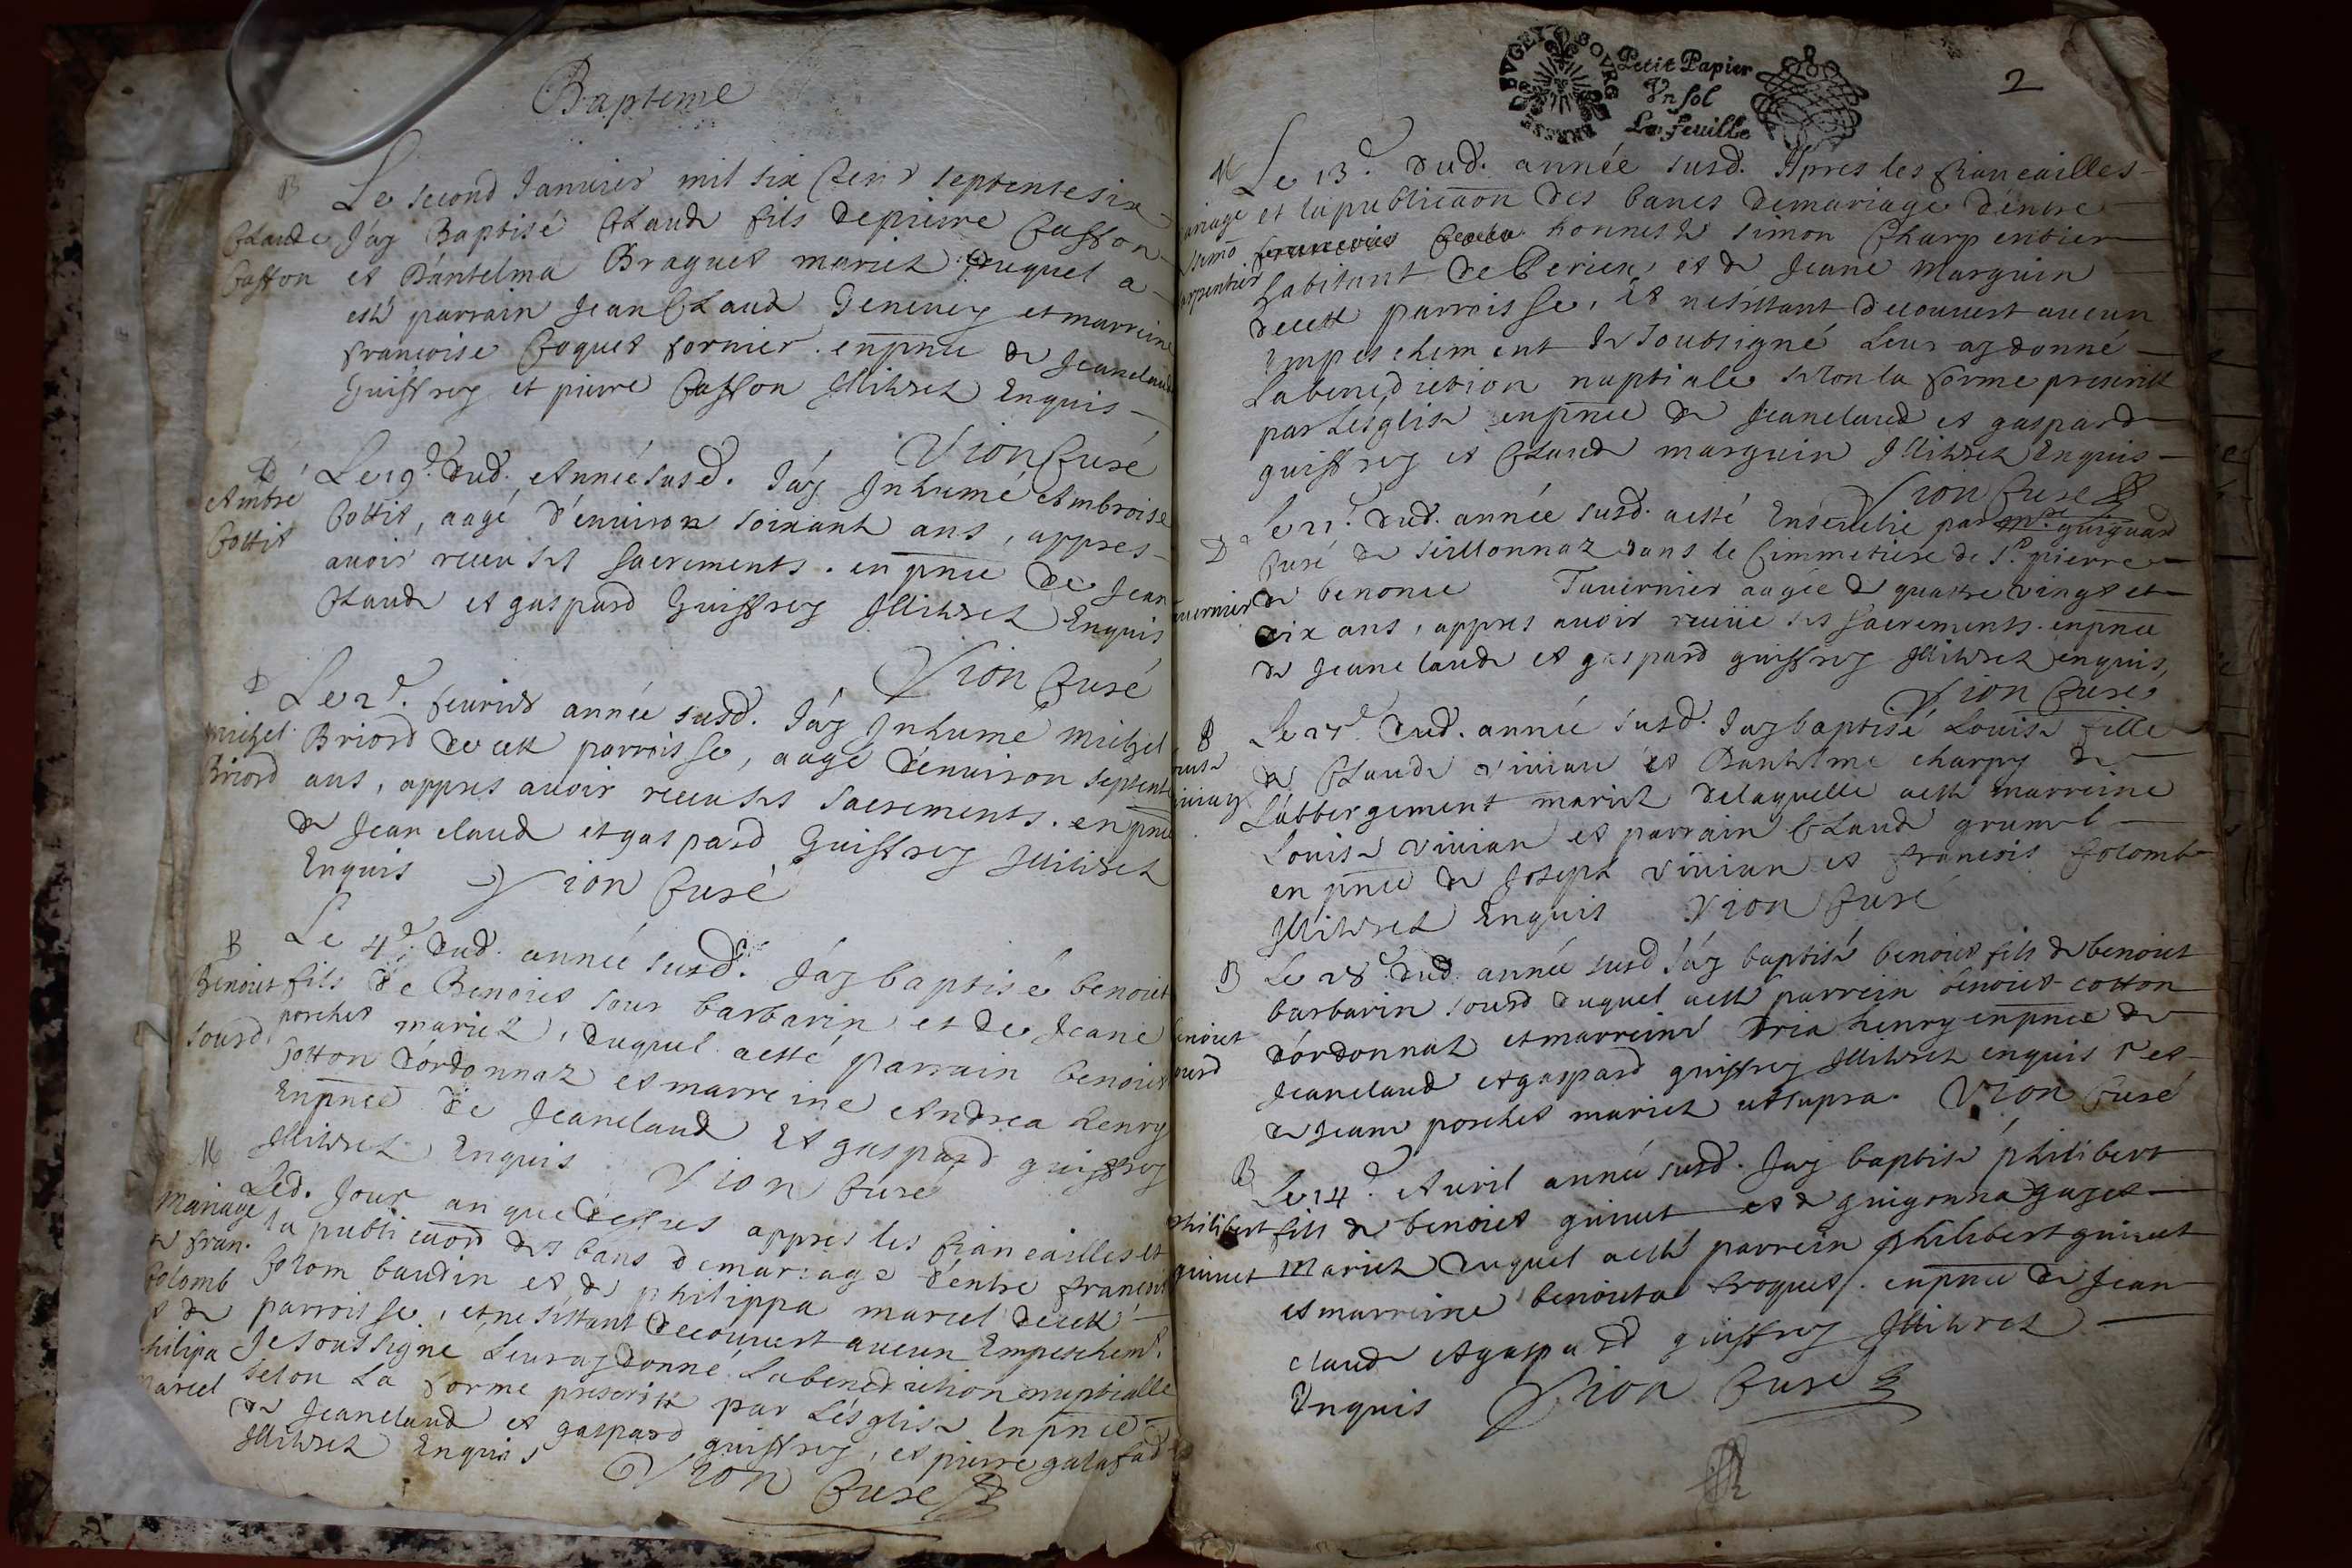 Bapteme
B
Le second Januier mil six Cens septente six
Claude Jáy Baptisé Claude fils de pierre Casson
Casson et D'antelma Braguet mariez duquel a
esté parrain Jean Claude Geneuey et marreine
francoise Coquet fornier. en pnce de Jeanclaude
Guiffrey et pierre Casson Illitrez Enquis
Vion Curé
D
Le 19.e dud. Année susd. Jáy Inhumé Ambroise
Ambre Cottit, aagé d'enuiron soixante ans, appres
Cottit avoir receu ses sacrements. en pnce de Jean
Claude et gaspard Guiffrey Illitrez Enquis
Vion Curé
D
Le 2.e feurier année susd. Jáy Inhumé michel
michel Briord de cette parroisse, aagé d'enuiron septente
Briord ans, appres auoir receu ses sacrements. en pnce
de Jean claude et gaspard Guiffrey Illitrez
Enquis Vion Curé
B
Le 4.e dud. année susd. Jáy baptisé benoict
Benoict fils de Benoict sour barbarin et de Jeane
sourd porchet mariez, duquel a esté parrain benoict
Cotton d'ordonnaz et marreine Andrea henry
En pnce de Jeanclaude Et gaspard guiffrey
Illitrez Enquis Vion Curé
M
Led. Jour an que dessus appres les fiancailles et
Mariage la publicaon des bans de mariage d'entre francois
de fran. Colom baudin et de philippa marcel de cette
Colomb parroisse, et ne s'estant decouuert aucun Empeschemt.
et de Je soussigné Leur ay donné La benediction nuptialle
philipa selon La forme prescritte par L'ésglise En pnce
marcel de Jeanclaude et gaspard guiffrey, et pierre galafad
Illitrez Enquis
Vion Cure
BOVRG
BVGEY
BRESSE
Petit Papier
Vn sol
La feuille
2
M
Le 13.e dud. année susd. Apres les fiancailles
mariage et la publicaon des bancs de mariage d'entre
simo. honneste simon Charpentier
Charpentier habitant de Perieu, et de Jeane Marguin
de cette parroisse, Et ne s'estant decouuert aucun
Empeschement Je soubsigné Leur ay donné
La benediction nuptiale selon la forme prescritte
par L'ésglise en pnce de Jeanclaude et gaspard
guiffrey et Claude marguin Illitrez Enquis
Vion Cure
D
Le 21.e dud. année susd. a esté Enseuelie par mre. guiguard
Curé de seillonnaz dans le Cimmetiere de St. pierre
Tauernier de benonce Tauernier aagée de quatre vingt et
six ans, appres auoir receüe ses sacrements. en pnce
de Jeanclaude et gaspard guiffrey Illitrez enquis
Vion Curé
B
Le 25.e dud. année susd. Jay baptisé Louise fille
Louise de Claude viuian et Danthelme charpy de
viuian L'abbergement mariez de laquelle a esté marreine
Louise viuian et parrain Claude grumel
en pnce de Joseph viuian et francois Colomb
Illitrez Enquis Vion Curé
B
Le 28.e dud. année susd Jáy baptisé benoict fils de benoict
barbarin sourd duquel a esté parrein benoict cotton
benoict d'ordonnaz et marreine dria henry en pnce de
sourd Jeanclaude et gaspard guiffrey Illitrez enquis & et
de Jeane porchet mariez ut supra. Vion Curé
B
Le 14.e Auril année susd. Jay baptisé philibert
philibert fils de benoict guinet et de guigonna gaget
guinet Mariez duquel a esté parrein philibert guinet
et marreine benoicta broquet. en pnce de Jean
claude et gaspard guiffrey Illitrez
Enquis Vion Curé